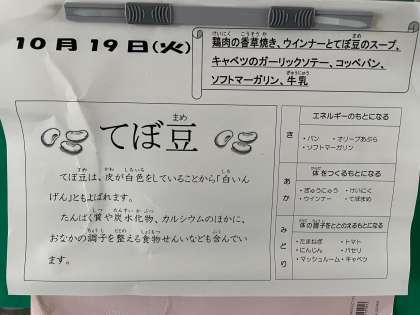 10月19日(火)
鶏肉の香草焼き、ウインナーとてぼ豆のスープ、
キャベツのガーリックソテー、コッペパン、
ソフトマーガリン、牛乳
てぼ豆
てぼ豆は、皮が白色をしていることから「白いん
げん」ともよばれます。
たんぱく質や炭水化物、カルシウムのほかに、
おなかの調子を整える食物せんいなども含んでい
ます。
エネルギーのもとになる
き
・パン ・オリーブあぶら
・ソフトマーガリン
体をつくるもとになる
あか
・ぎゅうにゅう ・けいにく
・ウインナー ・てぼまめ
体の調子をととのえるもとになる
みどり
・たまねぎ ・トマト
・にんじん ・パセリ
・マッシュルーム ・キャベツ